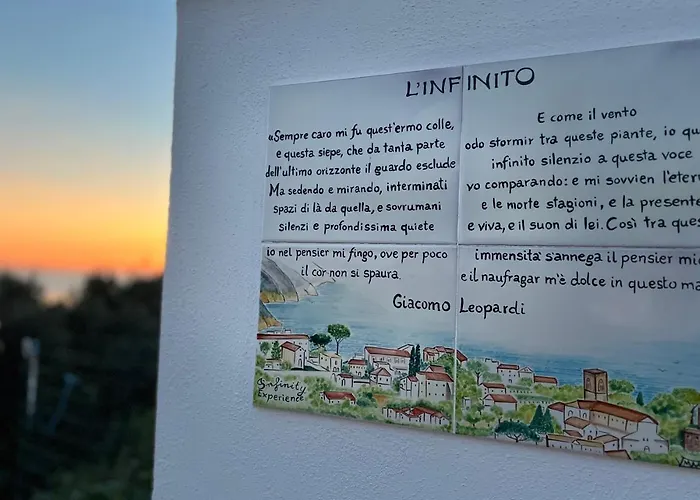 L'INFINITO
«Sempre caro mi fu quest'ermo colle,
e questa siepe, che da tanta parte
dell'ultimo orizzonte il guardo esclude
Ma sedendo e mirando, interminati
spazi di là da quella, e sovrumani
silenzi e profondissima quiete
io nel pensier mi fingo, ove per poco
il cor non si spaura.
E come il vento
odo stormir tra queste piante, io qu
infinito silenzio a questa voce
vo comparando: e mi sovvien l'eter
e le morte stagioni, e la presente
e viva, e il suon di lei. Così tra ques
immensità s'annega il pensier mi
e il naufragar m'è dolce in questo ma
Giacomo Leopardi
Infinity
Experience